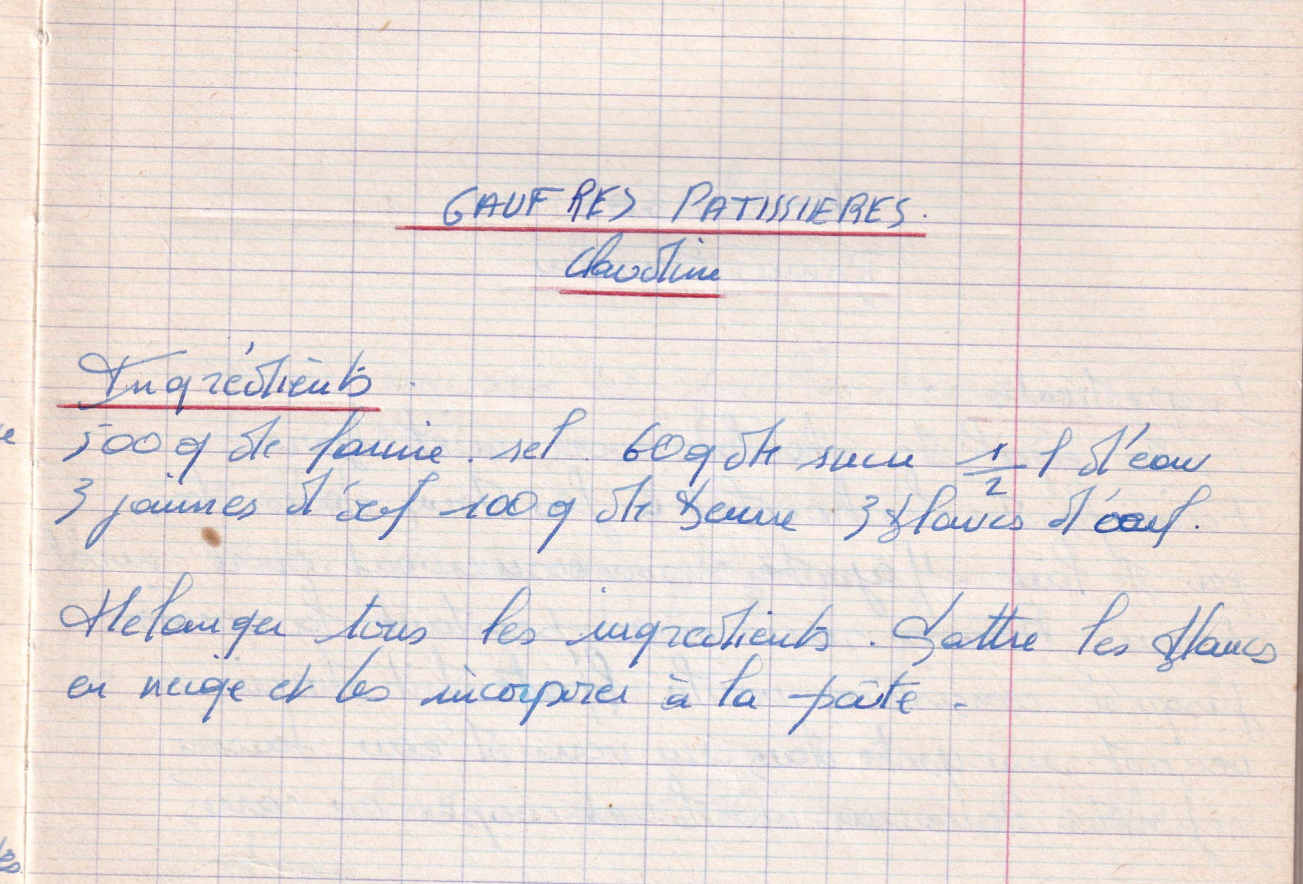 GAUFRES PATISSIERES.
Claudine
Ingrédients.
500 g de farine. sel. 60 g de sucre 1/2 l d'eau
3 jaunes d'œuf 100 g de beurre 3 blancs d'œuf.
Mélanger tous les ingrédients. Battre les blancs
en neige et les incorporer à la pâte.